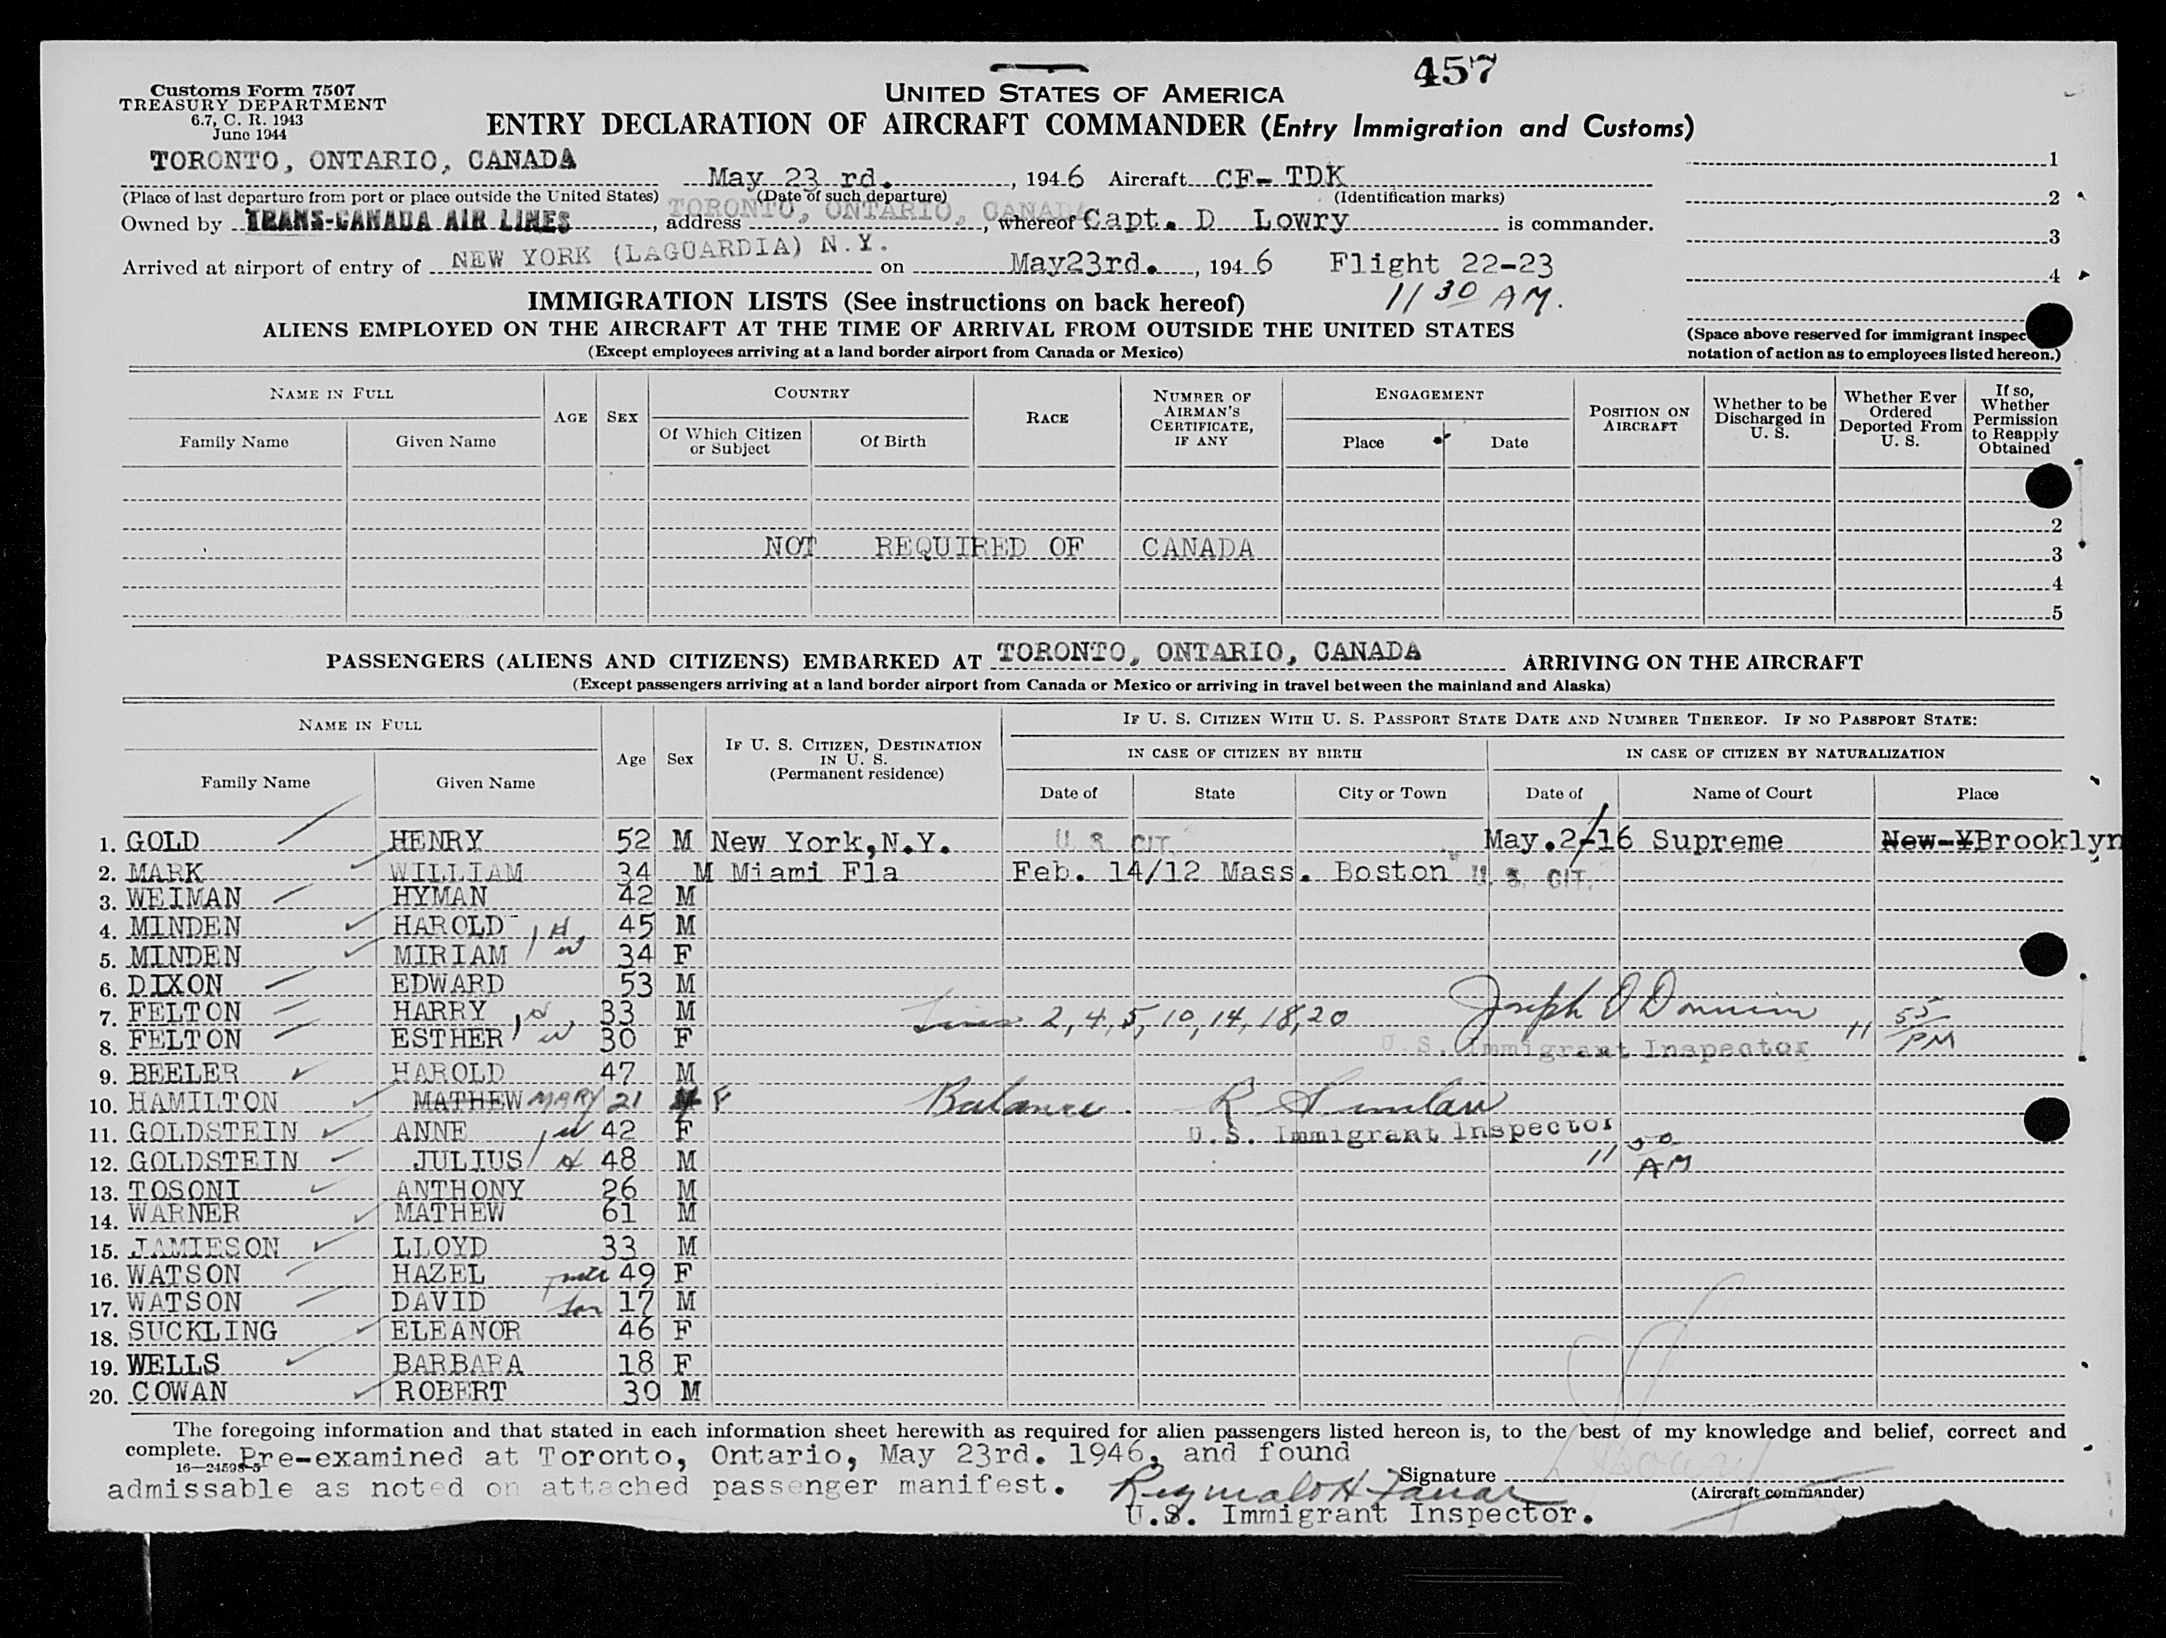 457
Customs Form 7507
TREASURY DEPARTMENT
6.7, C. R. 1943
June 1944
UNITED STATES OF AMERICA
ENTRY DECLARATION OF AIRCRAFT COMMANDER (Entry Immigration and Customs)
TORONTO, ONTARIO, CANADA May 23 rd. , 1946 Aircraft CF- TDK 1
(Place of last departure from port or place outside the United States) (Date of such departure) (Identification marks) 2
Owned by TRANS-CANADA AIR LINES , address TORONTO, ONTARIO, CANADA , whereof Capt. D Lowry is commander.
3
Arrived at airport of entry of NEW YORK (LAGUARDIA) N.Y. on May23rd. , 1946 Flight 22-23
4
11 30 AM.
IMMIGRATION LISTS (See instructions on back hereof)
ALIENS EMPLOYED ON THE AIRCRAFT AT THE TIME OF ARRIVAL FROM OUTSIDE THE UNITED STATES
(Except employees arriving at a land border airport from Canada or Mexico)
(Space above reserved for immigrant inspec
notation of action as to employees listed hereon.)
NAME IN FULL
Family Name Given Name
AGE SEX
COUNTRY
Of Which Citizen or Subject Of Birth
RACE
NUMBER OF AIRMAN'S CERTIFICATE, IF ANY
ENGAGEMENT
Place Date
POSITION ON AIRCRAFT
Whether to be Discharged in U. S.
Whether Ever Ordered Deported From U. S.
If so, Whether Permission to Reapply Obtained
2
NOT REQUIRED OF CANADA 3
4
5
PASSENGERS (ALIENS AND CITIZENS) EMBARKED AT TORONTO, ONTARIO, CANADA ARRIVING ON THE AIRCRAFT
(Except passengers arriving at a land border airport from Canada or Mexico or arriving in travel between the mainland and Alaska)
NAME IN FULL
Family Name Given Name
Age Sex
IF U. S. CITIZEN, DESTINATION IN U. S. (Permanent residence)
IF U. S. CITIZEN WITH U. S. PASSPORT STATE DATE AND NUMBER THEREOF. IF NO PASSPORT STATE:
IN CASE OF CITIZEN BY BIRTH IN CASE OF CITIZEN BY NATURALIZATION
Date of State City or Town Date of Name of Court Place
1. GOLD HENRY 52 M New York,N.Y. U. S. CIT. May.2-16 Supreme New-YBrooklyn
2. MARK WILLIAM 34 M Miami Fla Feb. 14/12 Mass. Boston U. S. CIT.
3. WEIMAN HYMAN 42 M
4. MINDEN HAROLD H 45 M
5. MINDEN MIRIAM W 34 F
6. DIXON EDWARD 53 M
7. FELTON HARRY H 33 M Lines 2, 4, 5, 10, 14, 18, 20 Joseph 11 55 PM
8. FELTON ESTHER W 30 F U.S. Immigrant Inspector
9. BEELER HAROLD 47 M
10. HAMILTON MATHEW MARY 21 M F Balance R
11. GOLDSTEIN ANNE W 42 F U.S. Immigrant Inspector
12. GOLDSTEIN JULIUS H 48 M 11 50 AM
13. TOSONI ANTHONY 26 M
14. WARNER MATHEW 61 M
15. JAMIESON LLOYD 33 M
16. WATSON HAZEL 49 F
17. WATSON DAVID Son 17 M
18. SUCKLING ELEANOR 46 F
19. WELLS BARBARA 18 F
20. COWAN ROBERT 30 M
The foregoing information and that stated in each information sheet herewith as required for alien passengers listed hereon is, to the best of my knowledge and belief, correct and
complete. Pre-examined at Toronto, Ontario, May 23rd. 1946, and found
admissable as noted on attached passenger manifest. Signature
(Aircraft commander)
U.S. Immigrant Inspector.